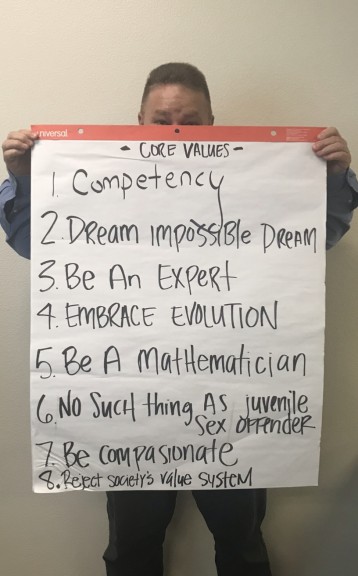 universal
- CORE VALUES -
1. Competency
2. Dream Impossible Dream
3. Be An Expert
4. EMBRACE EVOLUTION
5. Be A Mathematician
6. NO SUCH thing As juvenile
Sex OFFENDER
7. Be compasionate
8. Reject society's value system